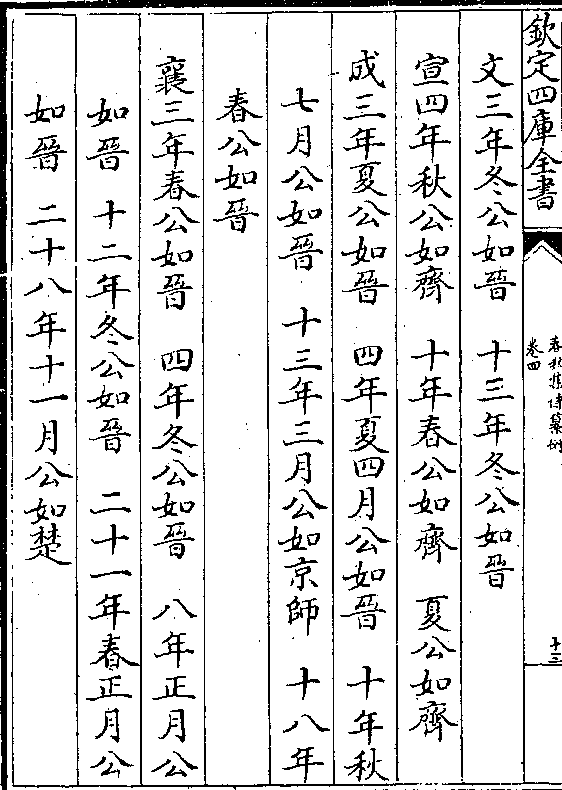 欽定四庫全書
春秋集傳纂例
卷四
十三
文三年冬公如晉　十三年冬公如晉
宣四年秋公如齊　十年春公如齊　夏公如齊
成三年夏公如晉　四年夏四月公如晉　十年秋
七月公如晉　十三年三月公如京師　十八年
春公如晉
襄三年春公如晉　四年冬公如晉　八年正月公
如晉　十二年冬公如晉　二十一年春正月公
如晉　二十八年十一月公如楚